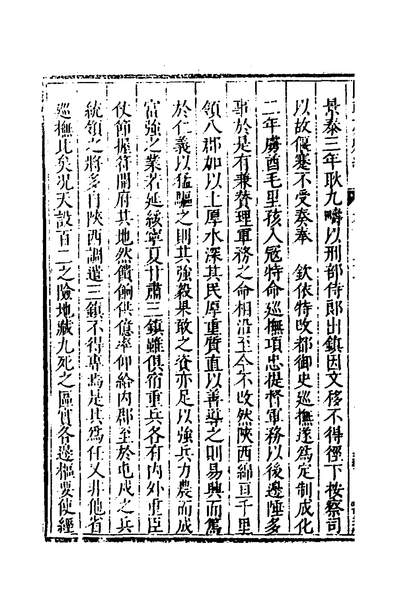 景泰三年耿九疇以刑部侍郎出鎮因文移不得徑下按察司
以故偃蹇不受奏奉　欽依特改都御史巡撫遂爲定制成化
二年虜酋毛里孩入寇特命巡撫項忠提督軍務以後邊陲多
事於是有兼賛理軍務之命相沿至今不改然陜西綿亘千里
領八郡如以上厚水深其民厚重質直以善導之則易興而篤
於仁義以猛驅之則其強毅果敢之資亦足以強兵力農而成
富強之業若延綏寧夏甘肅三鎮雖俱宿重兵各有内外重臣
仗節握符開府其地然饋餉供億率仰給内郡至於屯戍之兵
統領之將多自陜西調遣三鎮不得專焉是其爲任又非他省
巡撫比矣况天設百二之險地藏九死之區實各邊樞要使經